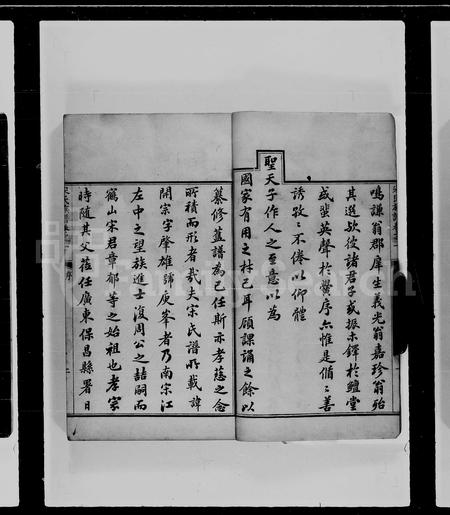 鳴謙翁郡庠生義光翁嘉珍翁殆
其選歟彼諸君子或振木鐸於鱣堂
或蜚英聲於黌序亦惟是循〻善
誘孜〻不倦以仰體
聖天子作人之至意以為
國家有用之材已耳顧課誦之餘以
纂修蓋譜為己任斯亦孝慈之念
所積而形者歟夫宋氏譜所載諱
開宗字肇雄號庾峯者乃南宋江
左中之望族進士浚周公之喆嗣而
鶴山宋君章郁等之始祖也孝宗
時隨其父蒞任廣東保昌縣署日